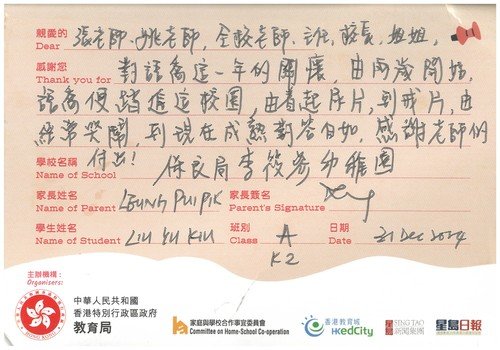 親愛的
Dear 張老師、姚老師、全校老師、主任、校長、姐姐、
感謝您
Thank you for 對語喬這一年的關懷,由兩歲開始,
語喬便踏進這校園,由着起尿片,到戒片,由
經常哭鬧,到現在成熟對答自如,感謝老師們
付出!
學校名稱
Name of School 保良局李筱芳幼稚園
家長姓名
Name of Parent LEUNG PUI PIK
家長簽名
Parent's Signature
學生姓名
Name of Student LIU YU KIU
班別
Class A
K2
日期
Date 21 Dec 2024
主辦機構:
Organisers:
HONG KONG
中華人民共和國
香港特別行政區政府
教育局
家庭與學校合作事宜委員會
Committee on Home-School Co-operation
香港教育城
HKedCity
星島
SING TAO
新聞集團
星島日報